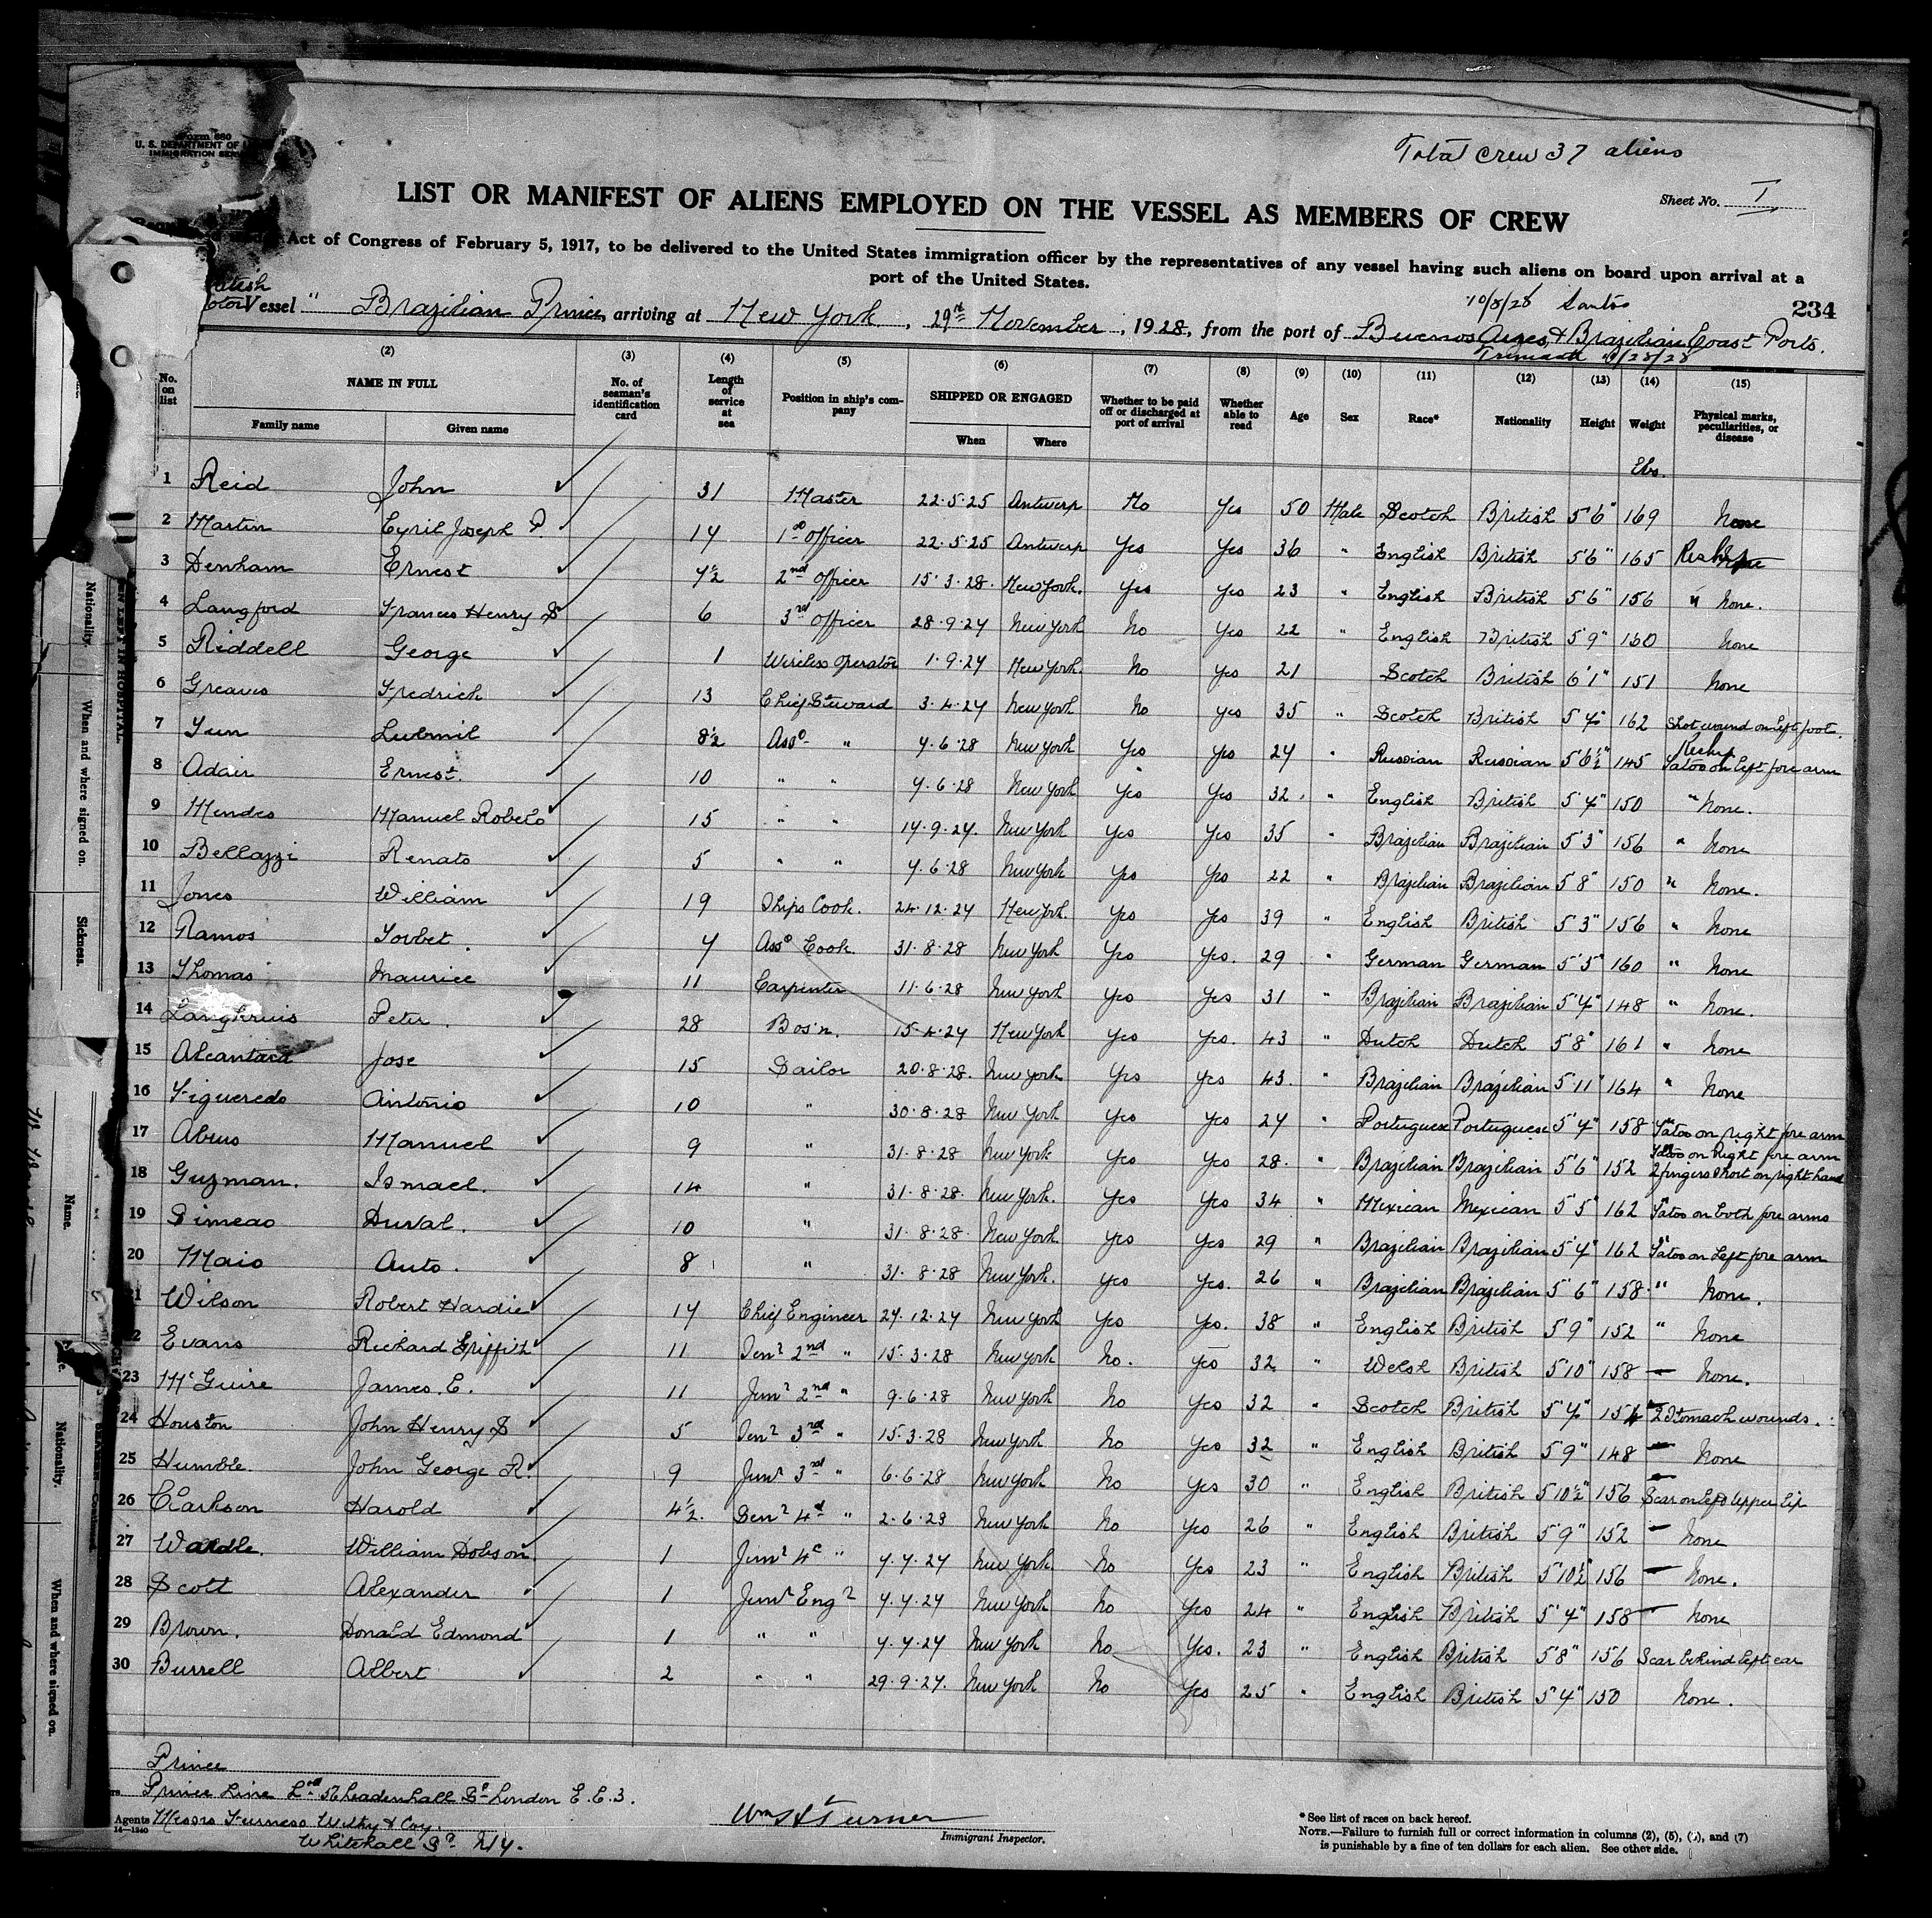 Form 680
U. S. DEPARTMENT OF
IMMIGRATION
Total Crew 37 aliens
Sheet No. I
LIST OR MANIFEST OF ALIENS EMPLOYED ON THE VESSEL AS MEMBERS OF CREW
Act of Congress of February 5, 1917, to be delivered to the United States immigration officer by the representatives of any vessel having such aliens on board upon arrival at a
port of the United States.
10/8/28 Santos
234
Vessel " Brazilian Prince, arriving at New York, 29th November, 1928, from the port of Buenos Aires, & Brazilian Coast Ports.
/28/28
(2) (3) (4) (5) (6) (7) (8) (9) (10) (11) (12) (13) (14) (15)
No. on list NAME IN FULL No. of seaman's identification card Length of service at sea Position in ship's company SHIPPED OR ENGAGED Whether to be paid off or discharged at port of arrival Whether able to read Age Sex Race* Nationality Height Weight Physical marks, peculiarities, or disease
Family name Given name When Where
Lbs.
1 Reid John 31 Master 22.5.25 Antwerp No Yes 50 Male Scotch British 5'6" 169 None
2 Martin Cyril Joseph P. 14 1st Officer 22.5.25 Antwerp Yes Yes 36 " English British 5'6" 165
3 Denham Ernest 7½ 2nd Officer 15.3.28. New York. Yes Yes 23 " English British 5'6" 156 " None.
4 Langford Frances Henry S 6 3rd Officer 28.9.27 New York No Yes 22 " English British 5'9" 160 None
5 Riddell George 1 Wireless Operator 1.9.27 New York. No Yes 21 Scotch British 6'1" 151 None
6 Greaves Fredrich 13 Chief Steward 3.4.27 New York No Yes 35 " Scotch British 5'7" 162 Shot wound on left foot.
7 Yun Lubmil 8½ Asst " 7.6.28 New York Yes Yes 27 " Russian Russian 5'6½" 145 Tatoo on left fore arm
8 Adair Ernest. 10 " " 7.6.28 New York Yes Yes 32. " English British 5'7" 150 " None.
9 Mendes Manuel Roberto 15 " " 17.9.27. New York Yes Yes 35 " Brazilian Brazilian 5'3" 156 " None
10 Bellazzi Renato 5 " " 7.6.28 New York Yes Yes 22 " Brazilian Brazilian 5'8" 150 " None.
11 Jones William 19 Ships Cook. 24.12.27 New York. Yes Yes 39 " English British 5'3" 156 " None
12 Ramos Torbet. 7 Asst Cook. 31.8.28 New York Yes Yes. 29 " German German 5'5" 160 " None
13 Thomas Maurice 11 Carpenter 11.6.28 New York Yes Yes 31 " Brazilian Brazilian 5'7" 148 " None.
14 Peter. 28 Bos'n. 15.4.27 New York Yes Yes. 43 " Dutch Dutch 5'8" 161 " None
15 Alcantara Jose 15 Sailor 20.8.28. New York Yes Yes 43. " Brazilian Brazilian 5'11" 164 " None
16 Figueredo Antonio 10 " 30.8.28 New York Yes Yes 27 " Portuguese Portuguese 5'7" 158 Tatoo on right fore arm
Tatoo on Right fore arm
17 Abreo Manuel 9 " 31.8.28 New York Yes Yes 28. " Brazilian Brazilian 5'6" 152 2 fingers short on right hand
18 Guzman. Ismael. 14 " 31.8.28. New York. Yes Yes 34 " Mexican Mexican 5'5" 162 Tatoo on both fore arms
19 Simeao Durval. 10 " 31.8.28. New York. Yes Yes 29 " Brazilian Brazilian 5'7" 162 Tatoo on Left fore arm
20 Maio Auto. 8 " 31.8.28 New York. Yes Yes. 26 " Brazilian Brazilian 5'6" 158. " None.
21 Wilson Robert Hardie 17 Chief Engineer 27.12.27 New York Yes Yes. 38 " English British 5'9" 152 " None
22 Evans Richard Griffith 11 Senr 2nd " 15.3.28 New York No. Yes 32 " Welsh British 5'10" 158 — None.
23 McGuire James. E. 11 Junr 2nd " 9.6.28 New York No Yes 32 " Scotch British 5'7" 154 2 Stomach wounds.
24 Houston John Henry S 5 Senr 3rd " 15.3.28 New York No Yes 32 " English British 5'9" 148 — None
25 Humble. John George R. 9 Junr 3rd " 6.6.28 New York No Yes 30 " English British 5'10½" 156 Scar on left upper Lip
26 Clarkson Harold 4½. Senr 4th " 2.6.28 New York No Yes 26 " English British 5'9" 152 — None
27 Wardle. William Dobson. 1 Junr 4th " 7.7.27 New York. No Yes 23 " English British 5'10½" 156 — None.
28 Scott Alexander 1 Junr Engr 7.7.27 New York No Yes 24 " English British 5'7" 158 — None
29 Brown. Donald Edmond 1 " " 7.7.27 New York No Yes. 23 " English British 5'8" 156 Scar behind left ear
30 Burrell Albert 2 " " 29.9.27. New York No Yes 25 " English British 5'4" 150 None.
Prince
Prince Line Ltd 56 Leadenhall St London E.C.3.
Agents Messrs Furness Withy & Coy.
14—1240
Whitehall St. N.Y.
Wm A Turner
Immigrant Inspector.
* See list of races on back hereof.
NOTE.—Failure to furnish full or correct information in columns (2), (5), ( ), and (7)
is punishable by a fine of ten dollars for each alien. See other side.
Nationality.
When and where signed on.
Sickness.
Name.
Nationality.
When and where signed on.